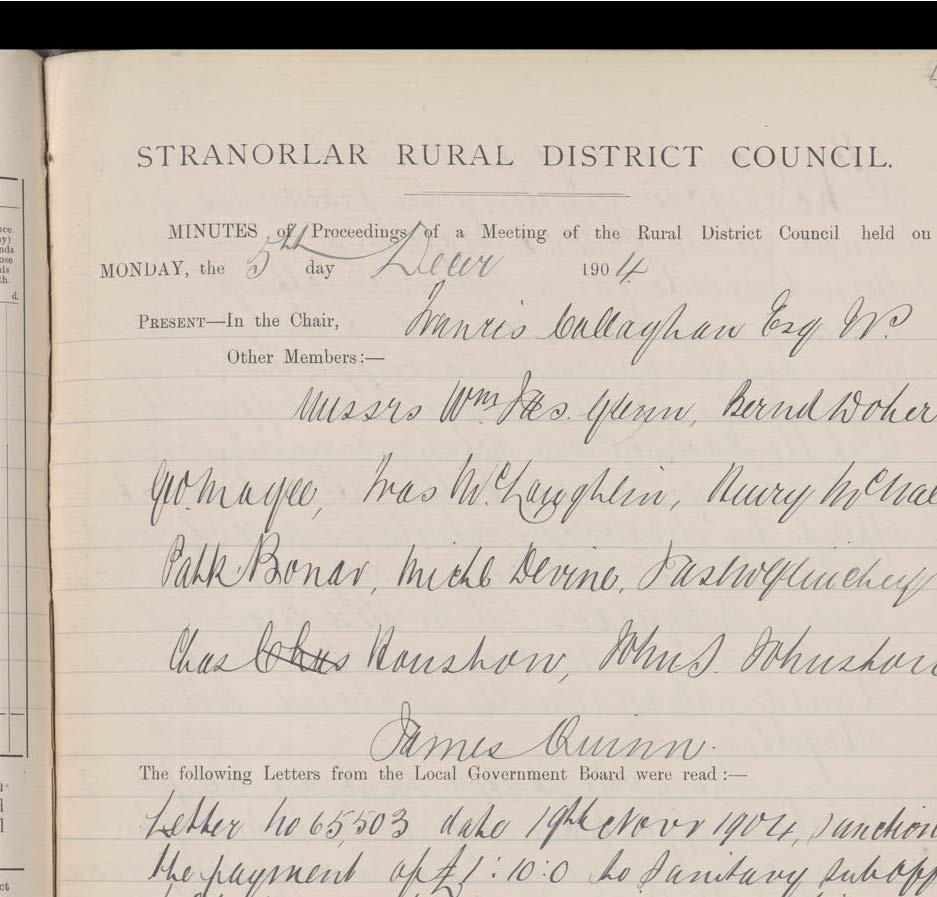 STRANORLAR RURAL DISTRICT COUNCIL.
MINUTES of Proceedings of a Meeting of the Rural District Council held on
MONDAY, the 5th day Decr 1904
PRESENT—In the Chair, Francis Callaghan Esq
Other Members:—
Messrs Wm Jas. Glenn, Bernd Doher
Geo. Magee, Fras McLaughlin, Henry
Patk Bonar, Michl Devine, Jas McGlinchey
Chas Chas Houston, John S. Johnston
James Quinn.
The following Letters from the Local Government Board were read:—
Letter No 65,503 date 19th Novr 1904, sanction
the payment of £1:10:0 to Sanitary suboff